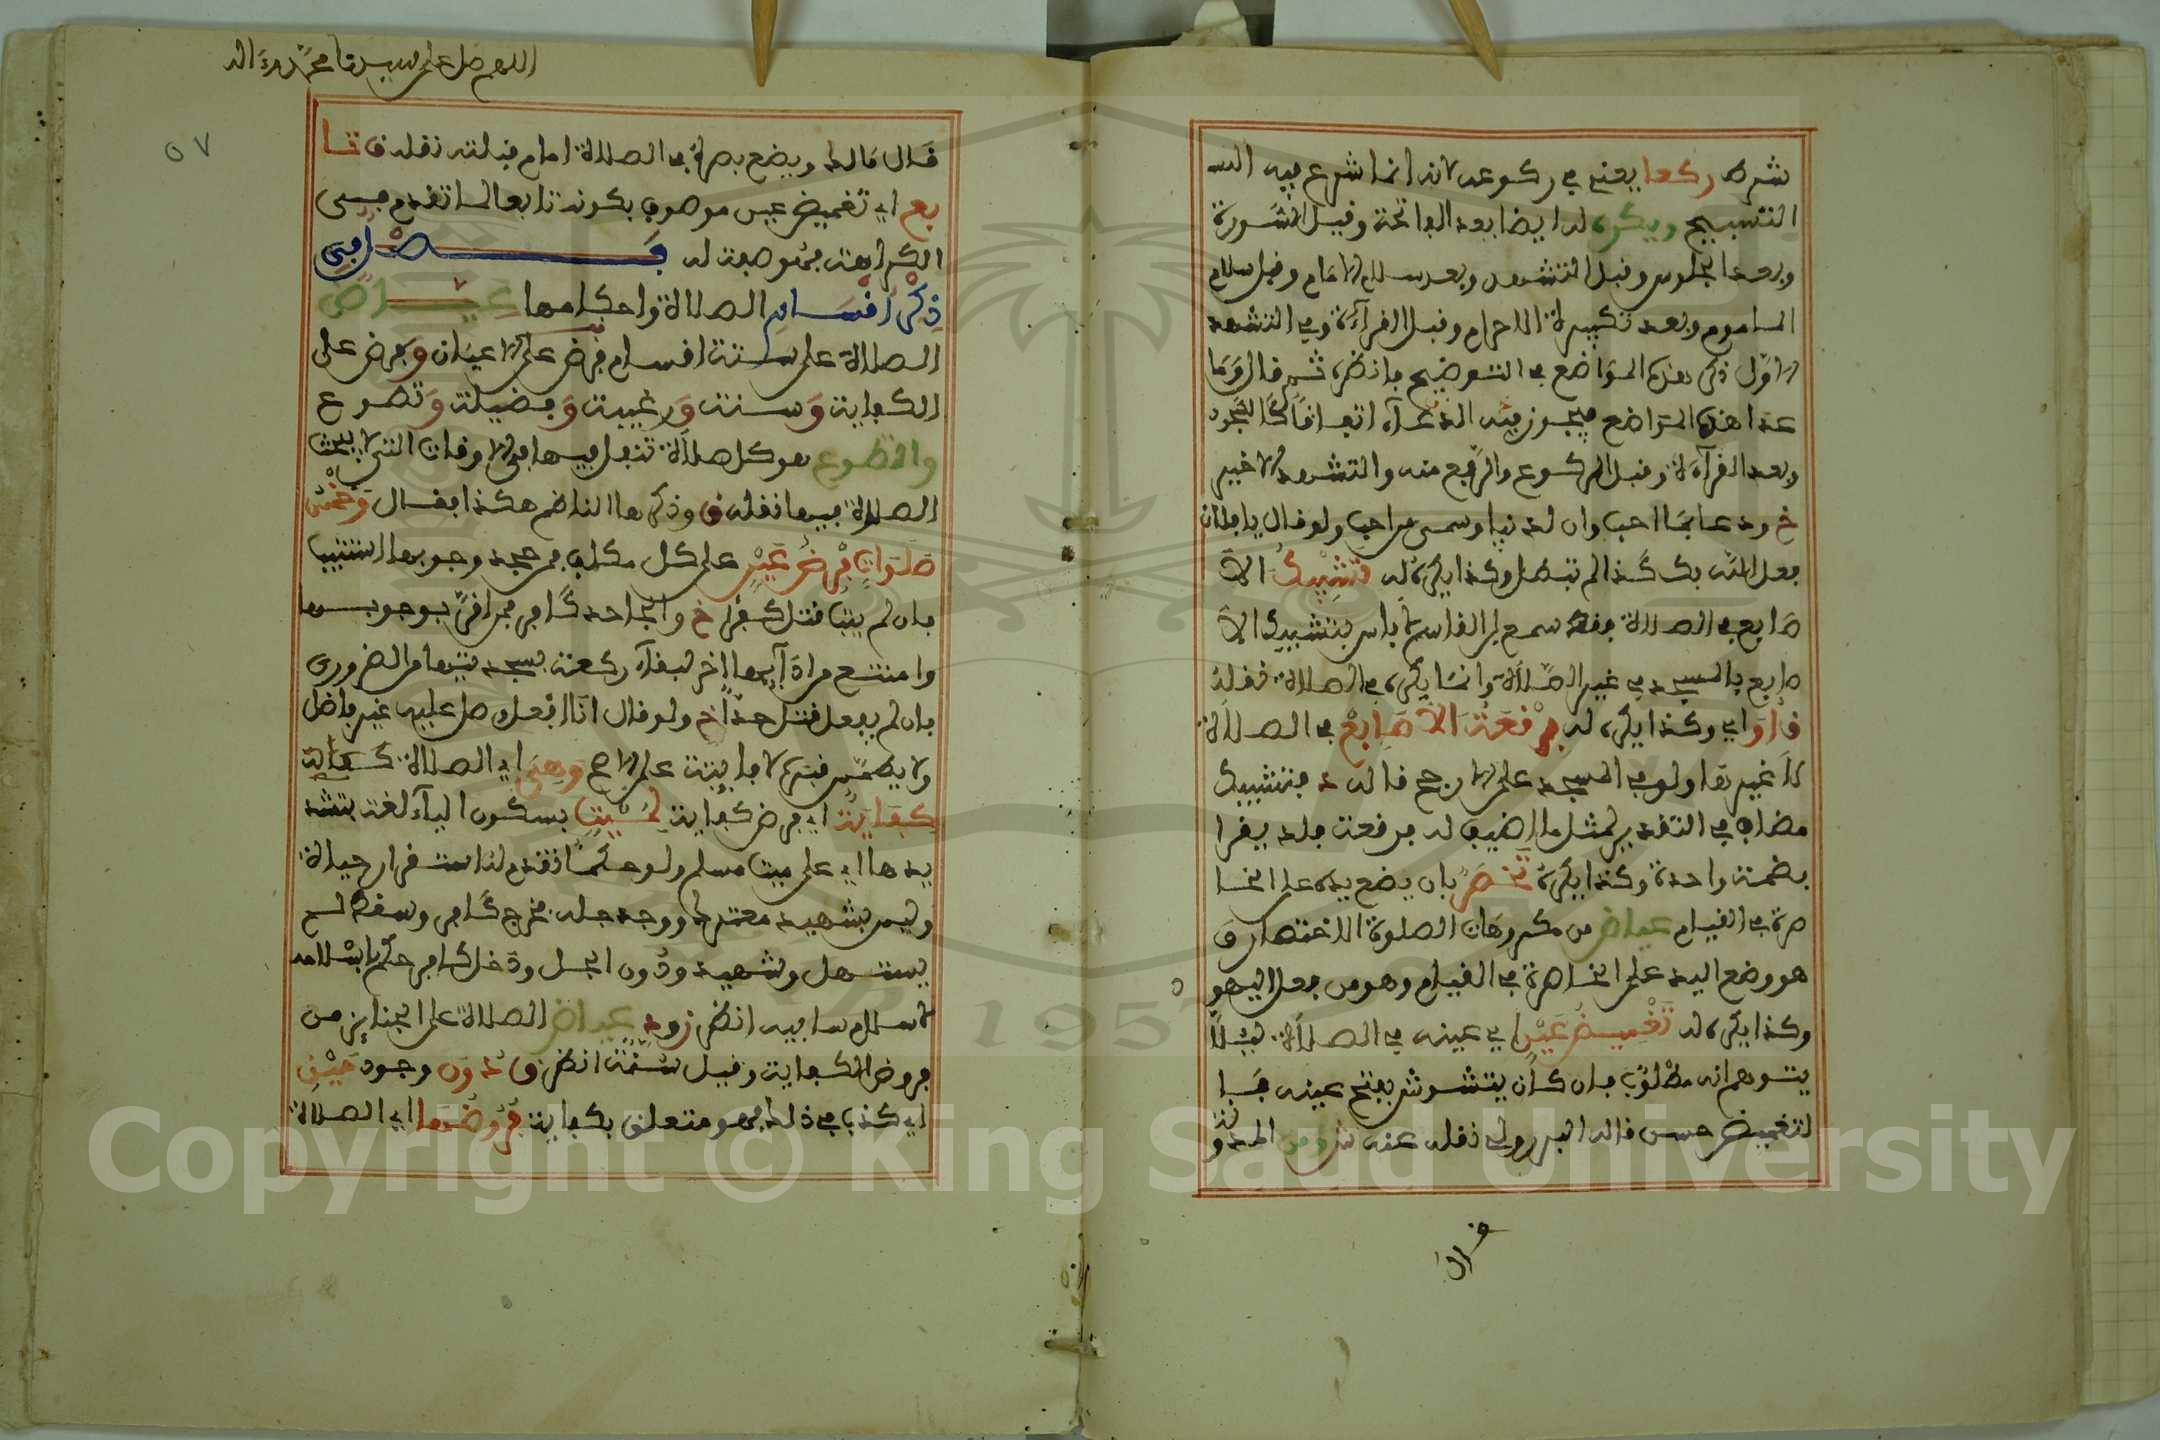 شرك ركعا يعني في ركوعه لانه انما شرع فيه
التسبيح ويكره له ايضا بعد الفاتحة وقبل السورة
وبعد الجلوس وقبل التشهد وبعد سلام الامام وقبل سلام
الماموم وبعد تكبيرة الاحرام وقبل القراءة وفي التشهد
الاول ذكر هذه المواضع في التوضيح فانظره ثم قال واما
عدا هذه المواضع فيجوز فيه الدعاء اتفاقا كالسجود
وبعد القراءة وقبل الركوع والرفع منه والتشهد الاخير
خ ودعا بما احب وان لدنيا وسمى من احب ولو قال يا فلان
فعل الله بك كذا لم تبطل وكذا يكره له تشبيك الا
صابع في الصلاة فقط سمع ابن القاسم لا باس بتشبيك الا
صابع بالمسجد في غير الصلاة وانما يكره في الصلاة نقله
ق او اي وكذا يكره له فرقعة الاصابع في الصلاة
لا غيرها ولو في المسجد على الارجح قاله د فتشبيك
مضاف في التقدير لمثل ما اضيف له فرقعة فلا يقرا
بضمة واحدة وكذا يكره تخصر بان يضع يده على الخا
صرة في القيام عياض من مكروهات الصلوة الاختصار و
هو وضع اليد على الخاصرة في القيام وهو من فعل اليهود
وكذا يكره له تغميض عين اي عينه في الصلاة ليلا
يتوهم انه مطلوب فان كان يتشوش بفتح عينه فا
لتغميض حسن قاله البرزولي نقله عنه ش ومن المدونة
قال
اللهم صل على سيدنا محمد وءاله
٥٧
قال مالك ويضع بصره في الصلاة امام قبلته نقله ق تا
بع اي تغميض عين موصوف بكونه تابعا لما تقدم في
الكراهة فهو صفة له فصل في
ذكر اقسام الصلاة واحكامها عياض
الصلاة على ستة اقسام فرض على الاعيان وفرض على
الكفاية وسنة ورغيبة وفضيلة وتطوع
والتطوع هو كل صلاة تنفل فيها في الاوقات التي لا يبحث
الصلاة فيها نقله ق وذكرها الناظم هكذا فقال وخمس
صلوات فرض عين على كل مكلف فمن جحد وجوبها استتيب
فان لم يتب قتل كفرا خ والجاحد كافر فمن اقر بوجوبها
وامتنع من اداءها اخر لبقاء ركعة بسجدتيها من الضروري
فان لم يفعل قتل حدا خ ولو قال انا افعل وصلى عليه غير فاضل
ولا يطمس قبره لا فايتة على الاصح وهي اي الصلاة كفاية
كفاية اي فرض كفاية لميت بسكون الياء لغة بتشد
يدها اي على ميت مسلم ولو حكما تقدم له استقرار حياة
وليس بشهيد معترك ووجد جله فخرج كافر وسقط لم
يستهل وشهيد ودون الجل ودخل كافر حكم باسلامه
لاسلام سابيه انظر ز ود عياض الصلاة على الجنايز من
فروض الكفاية وقيل سنة انظر ق دون وجود مين
اي كذب في ذلك فهو متعلق بكفاية فروضها اي الصلاة